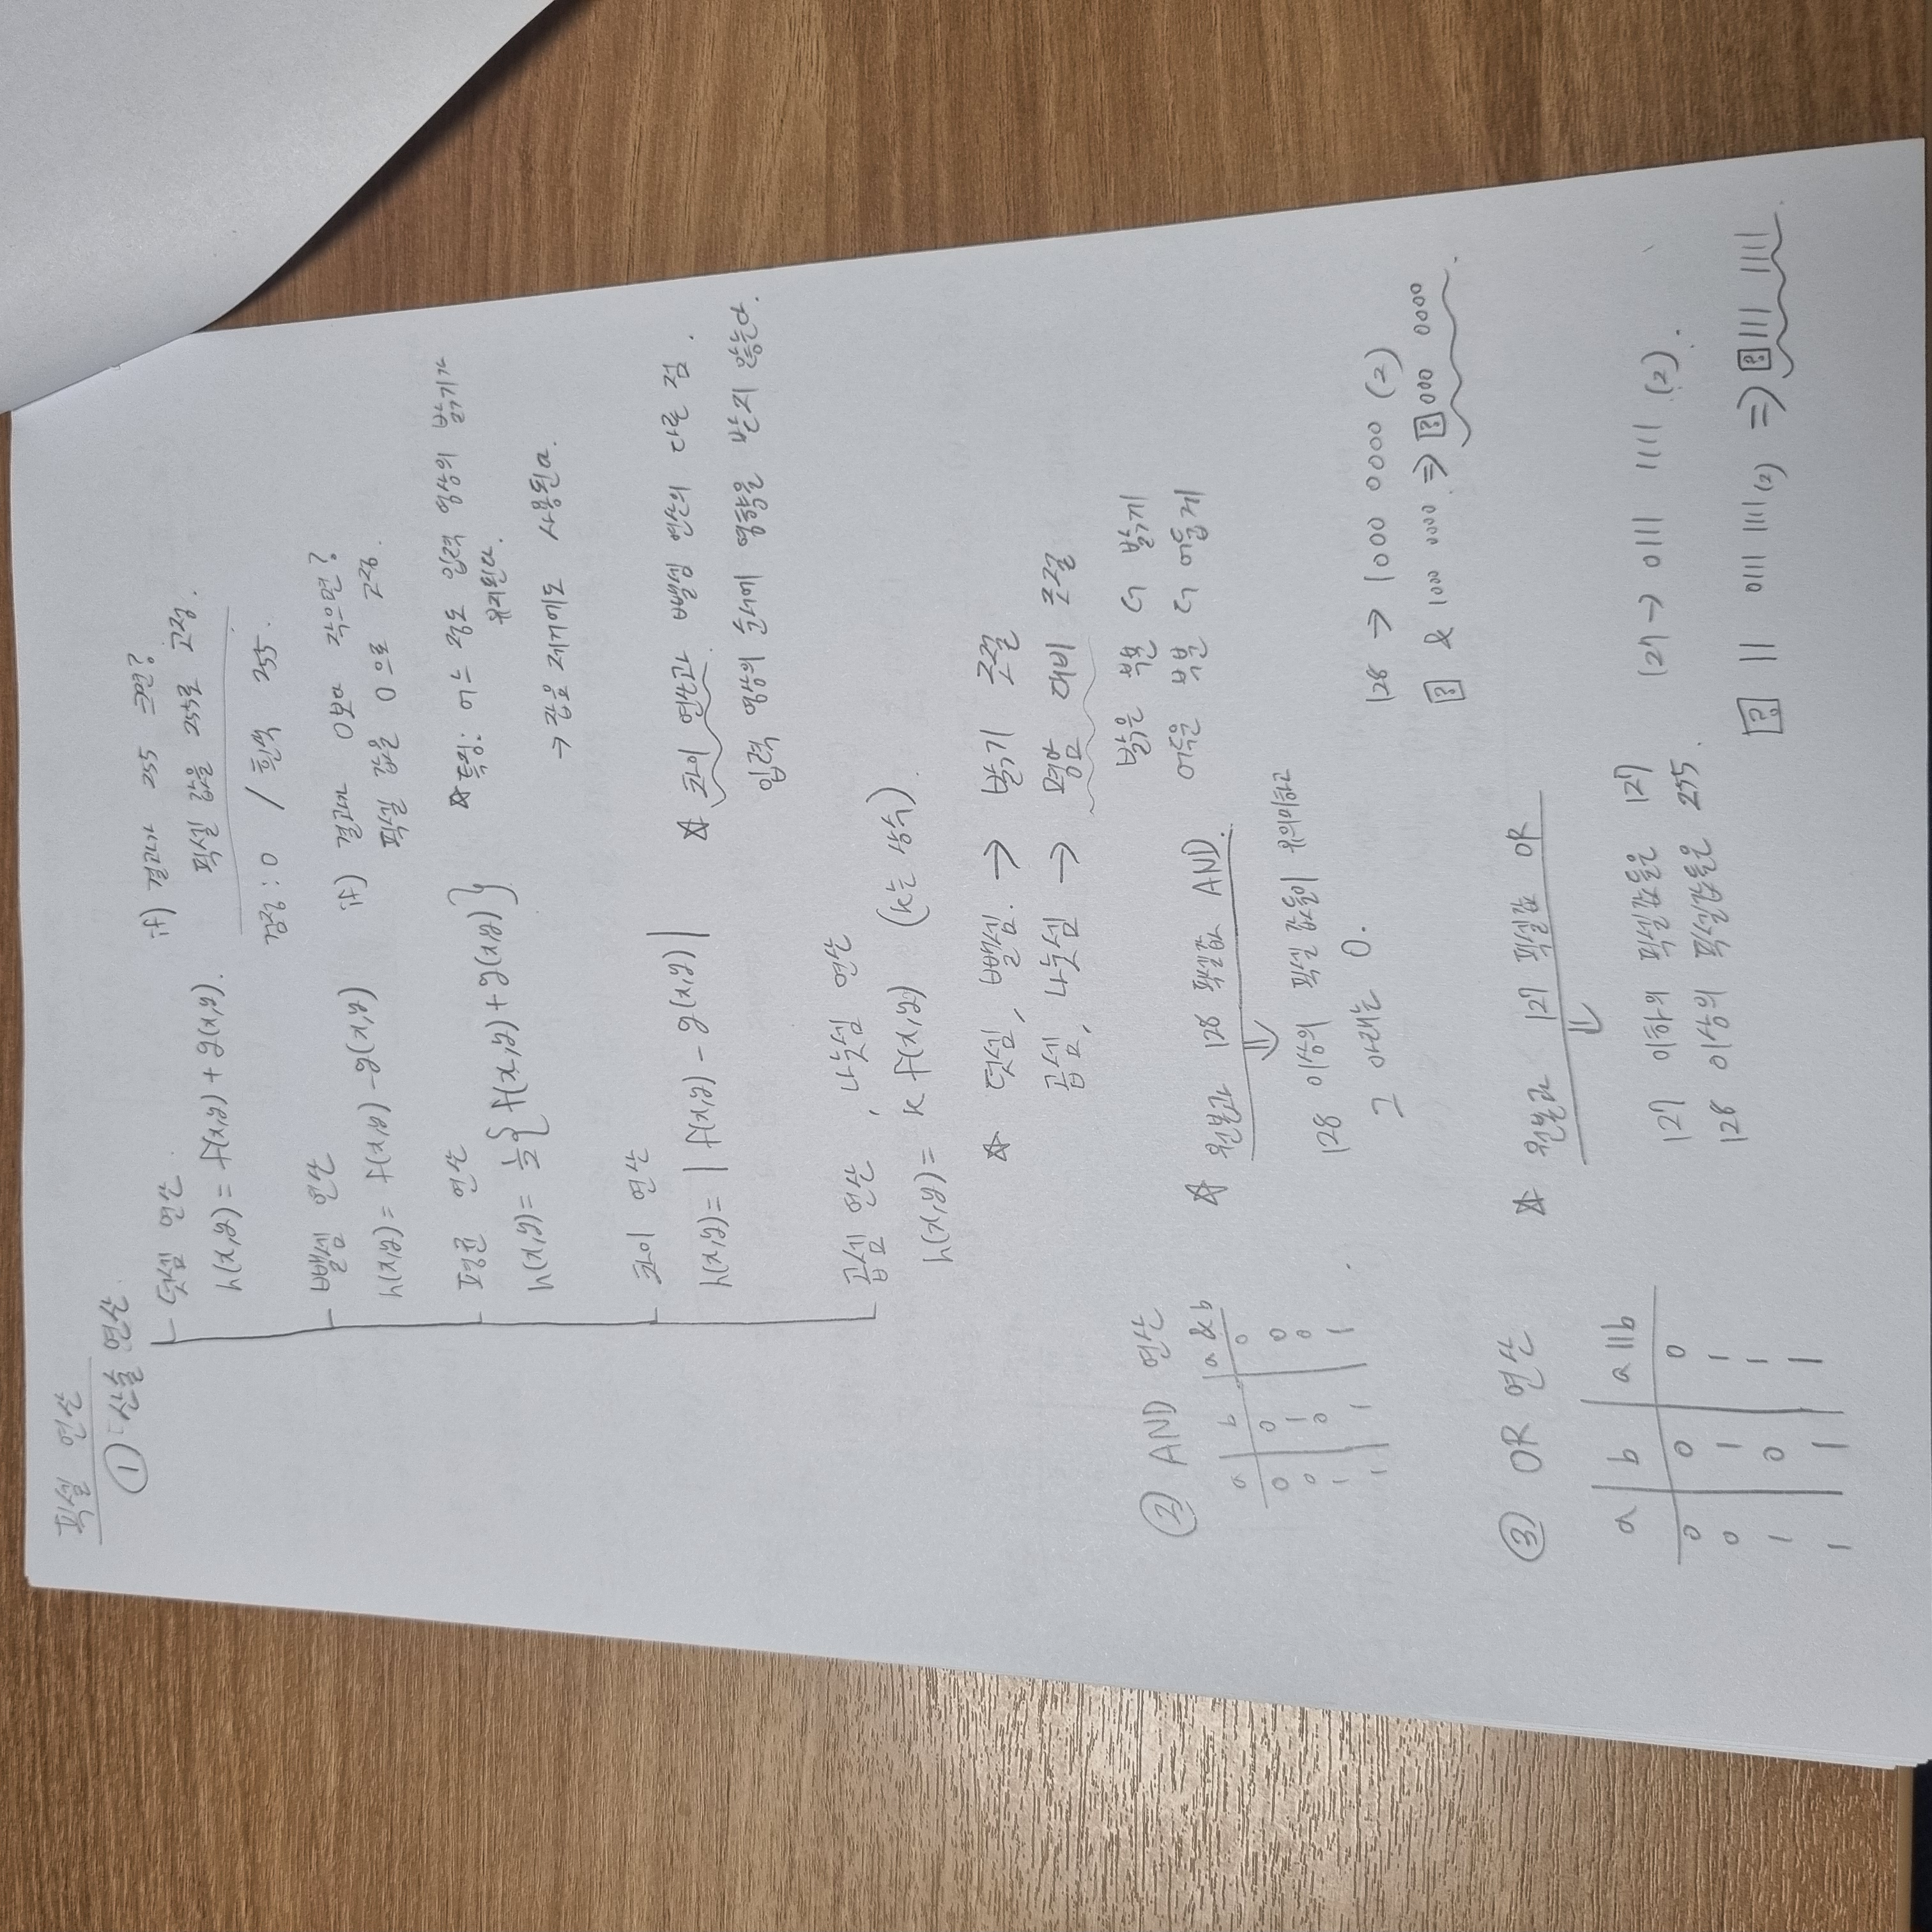 픽셀 연산
① 산술 연산
덧셈 연산
h(x,y) = f(x,y) + g(x,y).
if) 결과가 255 크면?
픽셀 값을 255로 고정.
검정 : 0 / 흰색 255.
뺄셈 연산
h(x,y) = f(x,y) - g(x,y)
if) 결과가 0보다 작으면?
픽셀 값을 0으로 고정.
평균 연산
h(x,y) = ½{f(x,y) + g(x,y)}
☆ 특징: 어느 정도 입력 영상의 밝기가
유지된다.
→ 잡음 제거에도 사용된다.
차이 연산
h(x,y) = | f(x,y) - g(x,y) |
☆ 차이 연산과 뺄셈 연산의 다른 점.
입력 영상의 순서에 영향을 받지 않는다.
곱셈 연산, 나눗셈 연산
h(x,y) = k f(x,y) (k는 상수).
☆ 덧셈, 뺄셈. → 밝기 조절
곱셈, 나눗셈 → 명암 대비 조절
밝은 부분 더 밝게
어두운 부분 더 어둡게
② AND 연산
a b a & b
0 0 0
0 1 0
1 0 0
1 1 1
☆ 원본과 128 픽셀값 AND.
⇓
128 이상의 픽셀 값들이 유의미하고
그 아래는 0.
128 → 1000 0000 (2)
[?] & 1000 0000 ⇒ [?]000 0000
③ OR 연산
a b a || b
0 0 0
0 1 1
1 0 1
1 1 1
☆ 원본과 127 픽셀값 OR
⇓
127 이하의 픽셀값들은 127
128 이상의 픽셀값들은 255.
127 → 0111 1111 (2).
[?] || 0111 1111 (2) ⇒ [?]111 1111